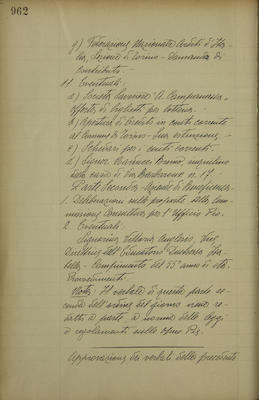 962
g) Federazione Nazionale Arditi d'Ita-
lia, Sezione di Torino - Domanda di
contributo.
11. Eventuali.
a) Società Canottieri "A. Campeneria" -
offerta di biglietti per lotteria. -
b) Apertura di Credito in conto corrente
al Comune di Torino - Sua estinzione. -
c) Schedari per conti correnti
d) Signor Bruno, inquilino
della casa di Via Barbaroux n. 17
Parte Seconda - Opere di Beneficenza.
1. Deliberazioni sulle proposte della Com-
missione Consultiva per l'Ufficio Pio.
2. Eventuali.
Signorina Vittoria, Vice
Direttrice dell'Educatorio Duchessa Isa-
bella - Compimento del 55° anno di età.
Provvedimenti.
Nota: Il verbale di questa parte se-
conda dell'ordine del giorno viene re-
datto a parte, a norma delle leggi
e regolamenti sulle Opere Pie.
Approvazione dei verbali delle precedenti